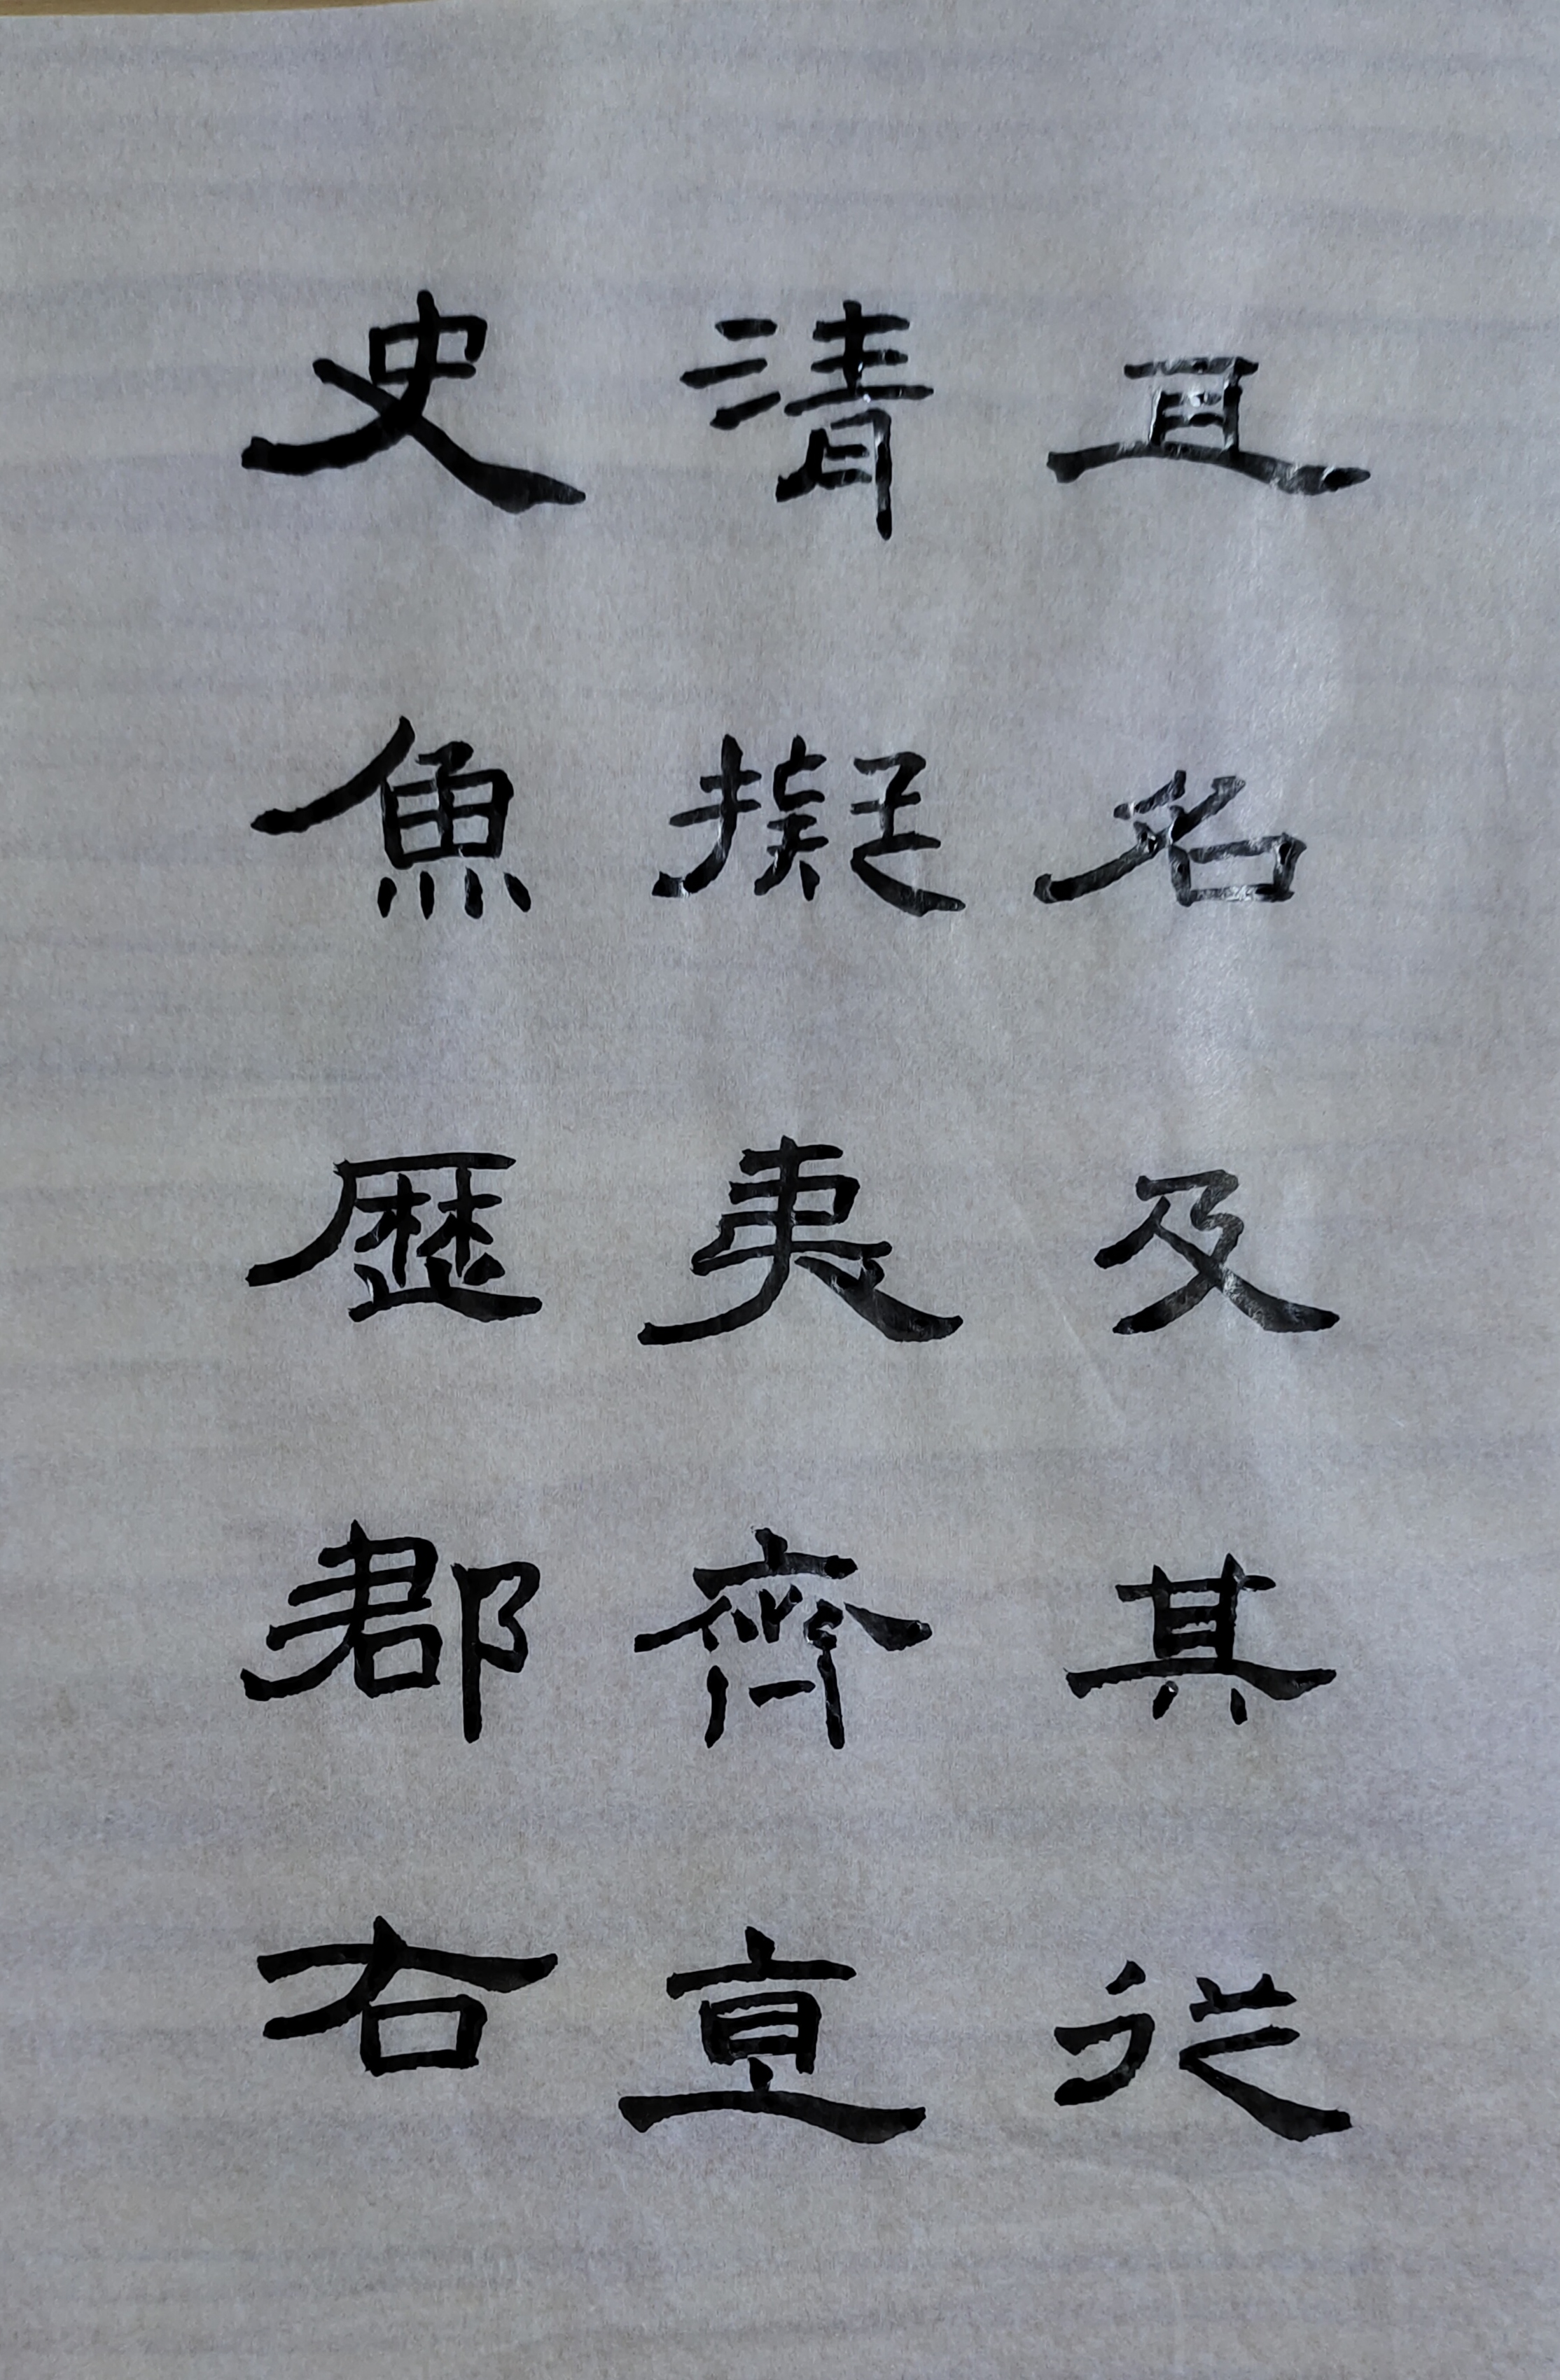 且名及其從
清擬夷齊直
史魚歷郡右